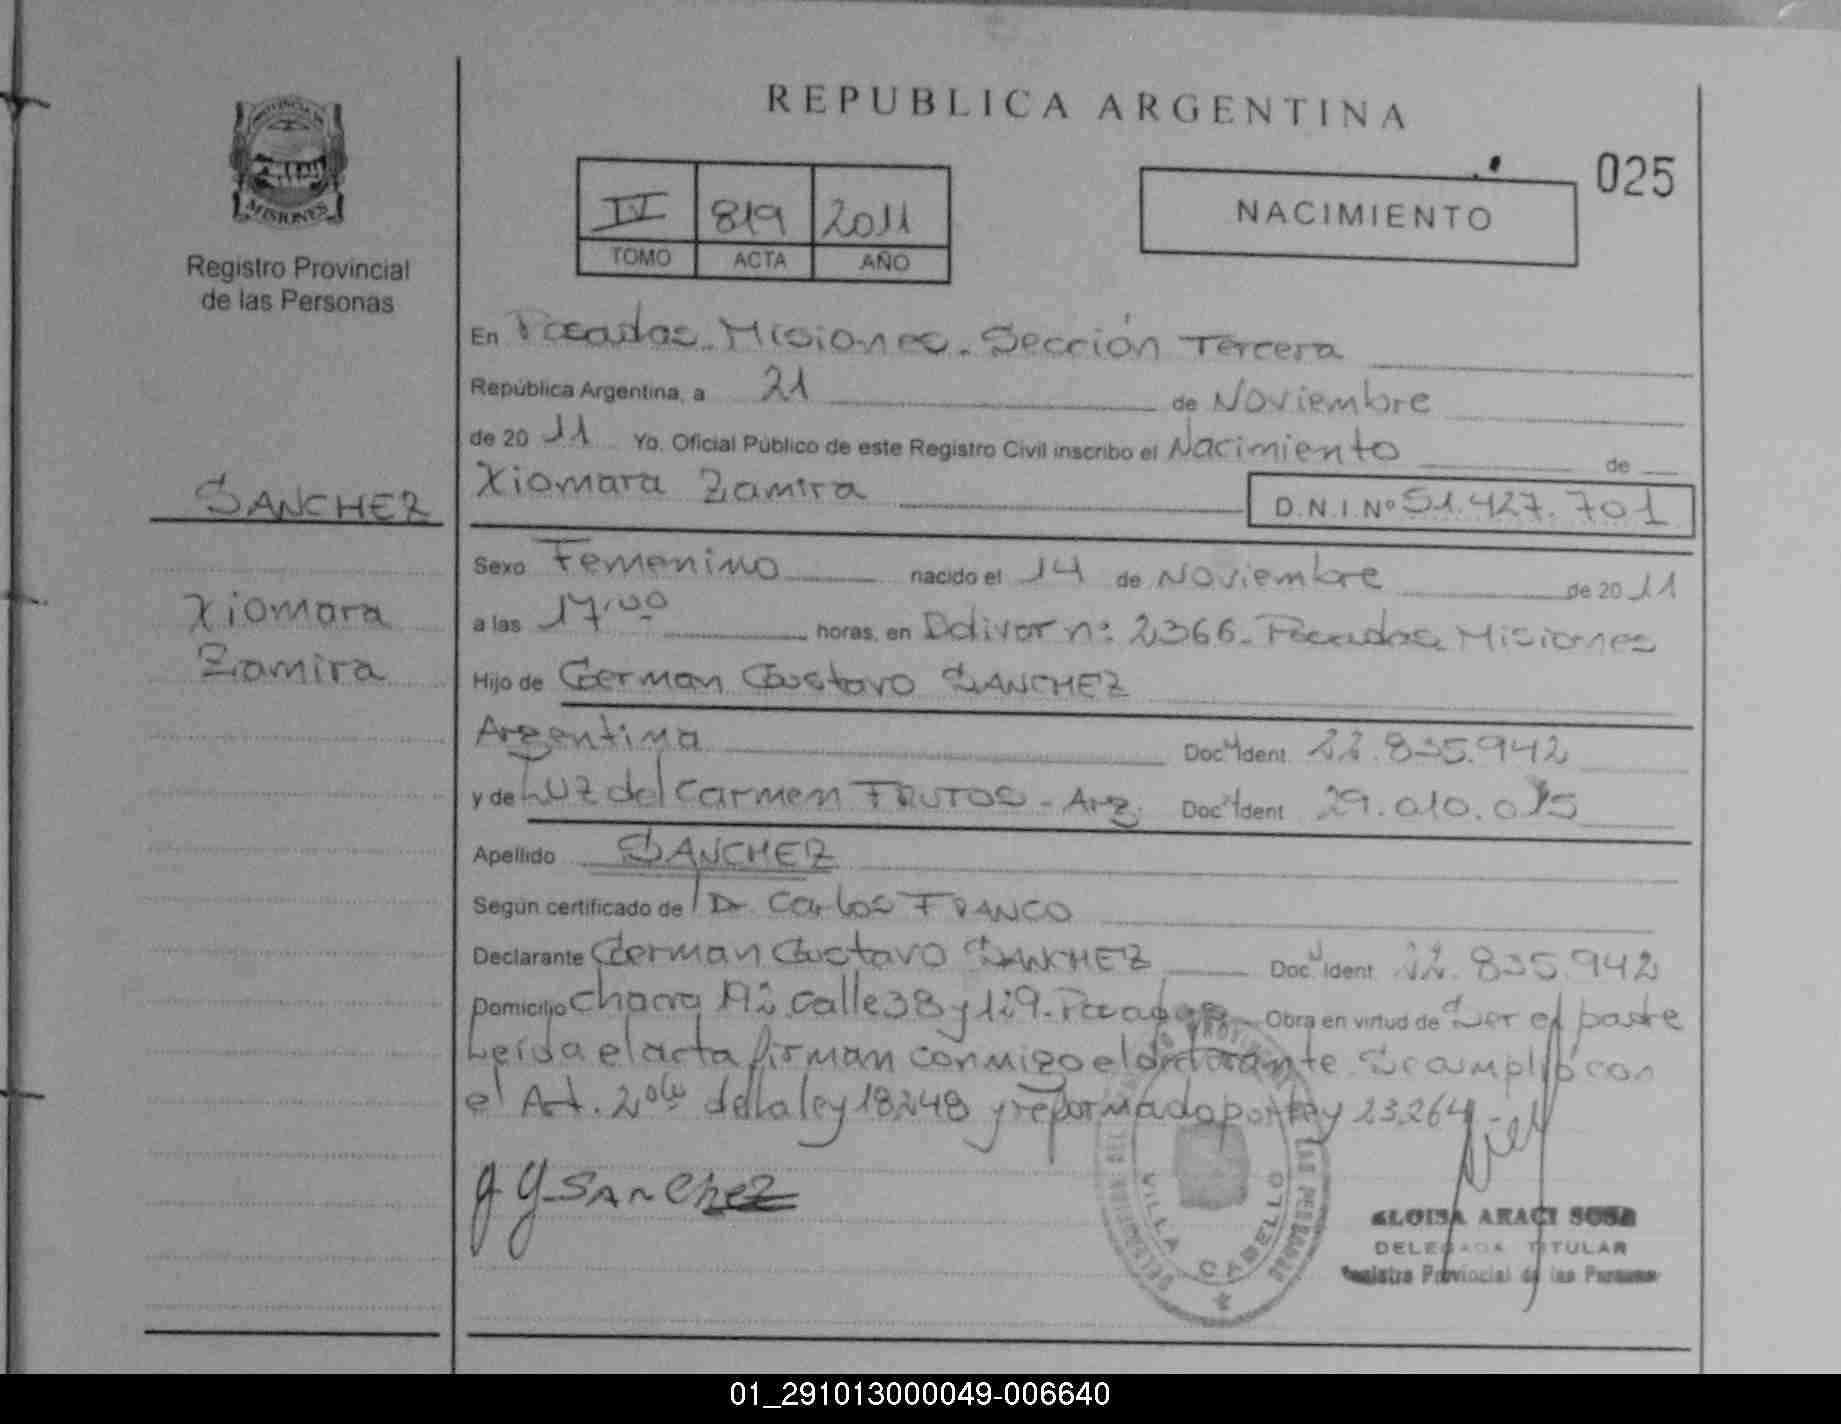 REPUBLICA ARGENTINA
025
PROVINCIA DE
MISIONES
Registro Provincial
de las Personas
IV 819 2011
TOMO ACTA AÑO
NACIMIENTO
En Posadas. Misiones. Sección Tercera
República Argentina, a 21 de Noviembre
de 20 11 Yo, Oficial Público de este Registro Civil inscribo el Nacimiento de
SANCHEZ
Xiomara Zamira D.N.I. Nº 51.427.701
Sexo Femenino nacido el 14 de Noviembre de 20 11
Xiomara
Zamira
a las 17,00 horas, en Bolivar nº 2366. Posadas Misiones
Hijo de German Gustavo SANCHEZ
Argentina Doc. Ident. 22.835.942
y de Luz del Carmen FRUTOS - Arg. Doc. Ident. 29.010.015
Apellido SANCHEZ
Según certificado de Dr. Carlos FRANCO
Declarante German Gustavo SANCHEZ Doc. Ident. 22.835.942
Domicilio Chacra calle 38 y 129. Posadas Obra en virtud de Ser el padre
Leída el acta firman conmigo el declarante. Se cumplió con
el Art. 2do de la ley 18248 y reformado por ley 23264
G G SANCHEZ
VILLA CABELLO
ELOISA ARACI SOSA
DELEGADA TITULAR
Registro Provincial de las Personas
01_291013000049-006640